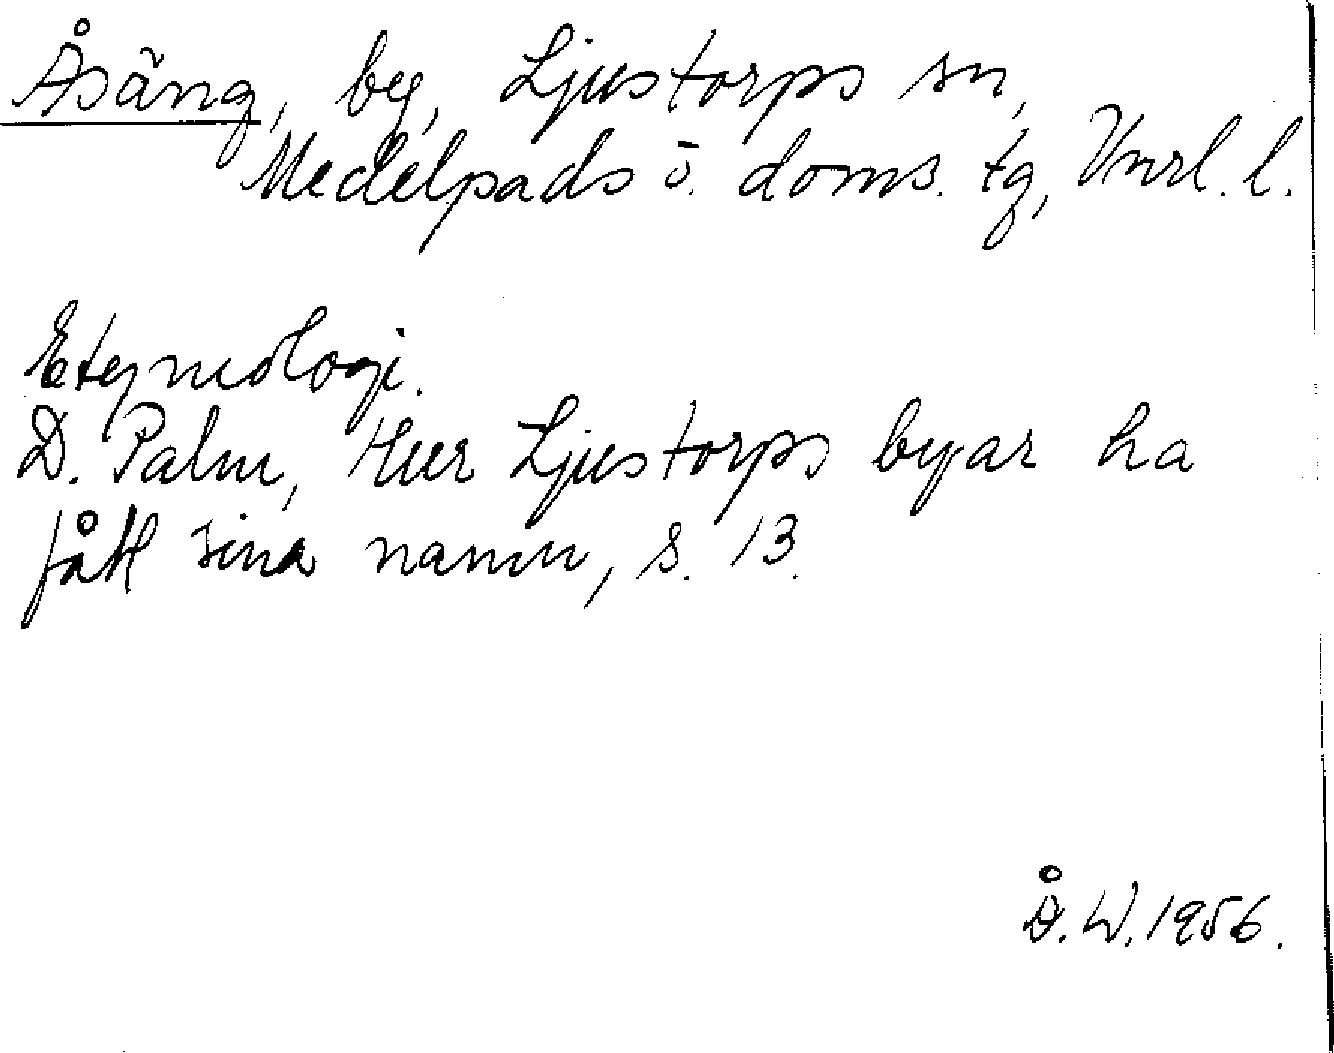 Åsäng, by, Ljustorps sn,
Medelpads ö. doms. tg, Vnrl. l.
Etymologi.
D. Palm, Hur Ljustorps byar ha
fått sina namn, s. 13.
Å. W. 1956.